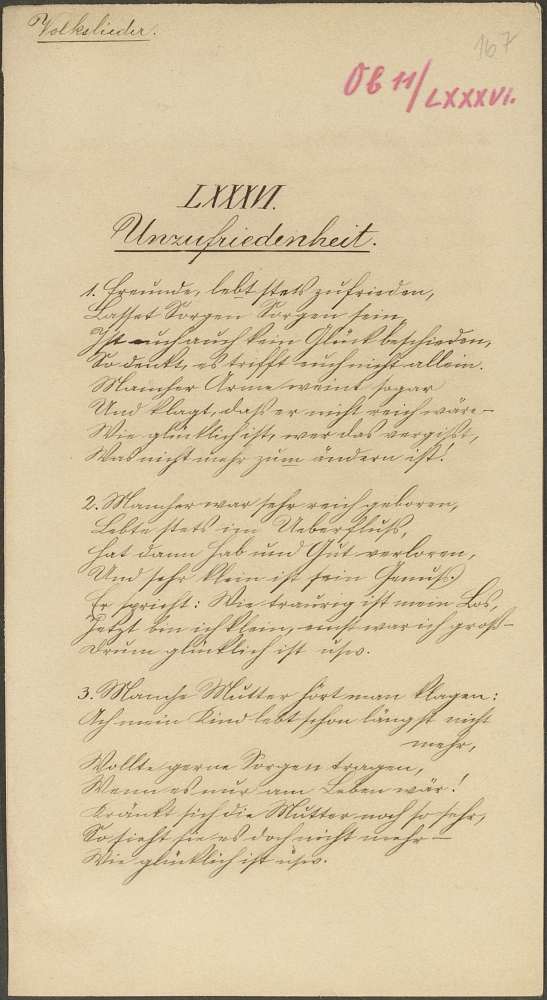 Volkslieder.
167
Ob 11/LXXXVI.
LXXXVI.
Unzufriedenheit.
1. Freunde, lebt stets zufrieden,
Lasset Sorgen Sorgen sein,
Ist euch auch kein Glück beschieden,
So denkt, es trifft euch nicht allein.
Mancher Arme weint sogar
Und klagt, daß er nicht reich wäre –
Wie glücklich ist, wer das vergißt,
Was nicht mehr zum ändern ist!
2. Mancher war sehr reich geboren,
Lebte stets im Ueberfluß,
Hat dann Hab und Gut verloren,
Und sehr klein ist sein Genuß.
Er spricht: Wie traurig ist mein Los,
Jetzt bin ich klein, einst war ich groß –
Drum glücklich ist usw.
3. Manche Mutter hört man klagen:
Ach mein Kind lebt schon längst nicht
mehr,
Wollte gerne Sorgen tragen,
Wenn es nur am Leben wär!
Kränkt sich die Mutter noch so sehr,
So sieht sie es doch nicht mehr –
Wie glücklich ist usw.